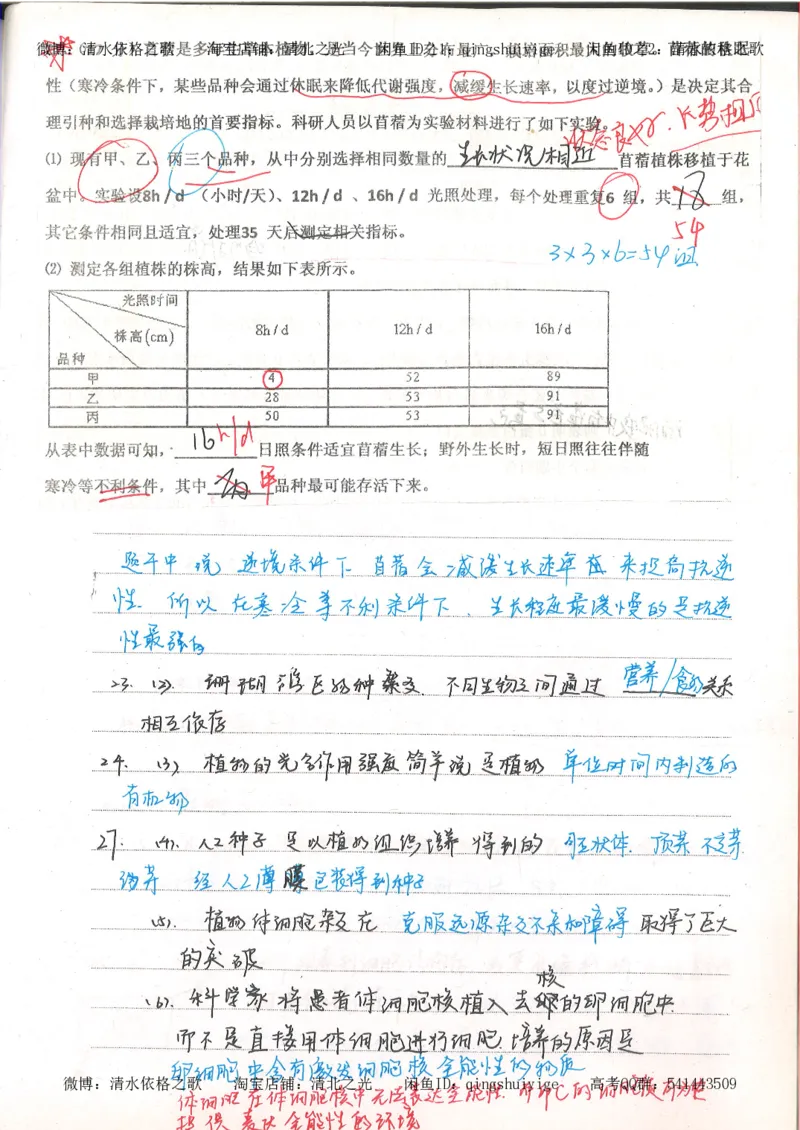 微博：清水依格之歌 淘宝店铺：清北之光 闲鱼ID：qingshuiyige
性（寒冷条件下，某些品种会通过休眠来降低代谢强度，减缓生长速率，以度过逆境。）是决定其合
理引种和选择栽培地的首要指标。科研人员以苜蓿为实验材料进行了如下实验。
状态良好、长势相同
⑴ 现有甲、乙、丙三个品种，从中分别选择相同数量的 生长状况相近 苜蓿植株移植于花
盆中。实验设8h / d （小时/天）、12h / d 、16h / d 光照处理，每个处理重复6 组，共 18 组，
54
其它条件相同且适宜，处理35 天后测定相关指标。
3×3×6=54组
⑵ 测定各组植株的株高，结果如下表所示。
光照时间
株高(cm)
品种
8h / d 12h / d 16h / d
甲 4 52 89
乙 28 53 91
丙 50 53 91
从表中数据可知， 16h/d 日照条件适宜苜蓿生长；野外生长时，短日照往往伴随
寒冷等不利条件，其中 丙 甲 品种最可能存活下来。
题干中说 逆境条件下 苜蓿会减缓生长速率 来提高抗逆
性. 所以在寒冷等不利条件下、生长程度最缓慢的是抗逆
性最强的
23. (2). 珊瑚 种 杂交. 不同生物之间通过 营养/食物关系
相互依存
24. (3) 植物的光合作用强度简单说是植物 单位时间内制造的
有机物
27. (4). 人工种子 是以植物组织培养得到的 胚状体. 顶芽. 不定芽.
经人工薄膜包装得到种子
(5). 植物体细胞杂交在 克服远源杂交不亲和障碍 取得了巨大
的突破
核
(6). 科学家将患者体细胞核植入去卵的卵细胞中.
而不是直接用体细胞进行细胞培养的原因是
卵细胞中含有激发细胞核全能性的物质
微博：清水依格之歌 淘宝店铺：清北之光 闲鱼ID：qingshuiyige 高考QQ群：541443509
体细胞在体细胞核中无法表达全能性.
提供表达全能性的环境